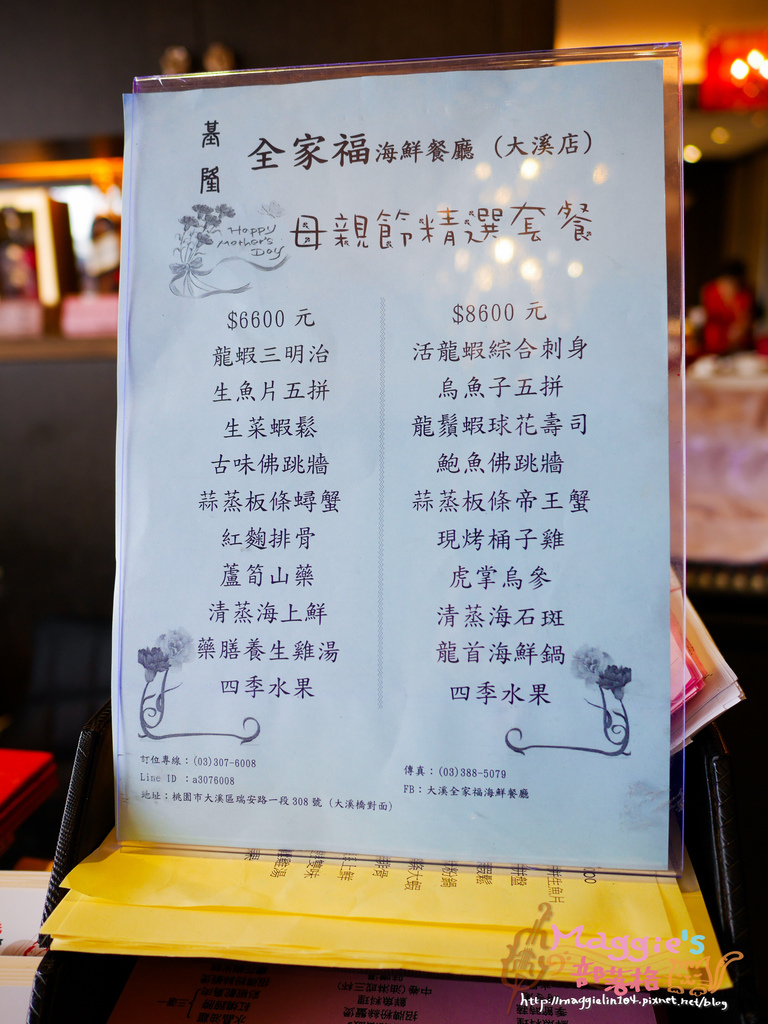 基隆
全家福海鮮餐廳（大溪店）
Happy
Mother's
Day
母親節精選套餐
$6600 元
龍蝦三明治
生魚片五拼
生菜蝦鬆
古味佛跳牆
蒜蒸板條蟳蟹
紅麴排骨
蘆筍山藥
清蒸海上鮮
藥膳養生雞湯
四季水果
$8600 元
活龍蝦綜合刺身
烏魚子五拼
龍鬚蝦球花壽司
鮑魚佛跳牆
蒜蒸板條帝王蟹
現烤桶子雞
虎掌烏參
清蒸海石斑
龍首海鮮鍋
四季水果
訂位專線：(03)307-6008
Line ID ：a3076008
地址：桃園市大溪區瑞安路一段 308 號（大溪橋對面）
傳真：(03)388-5079
FB：大溪全家福海鮮餐廳
Maggie's
部落格
http://maggielin104.pixnet.net/blog